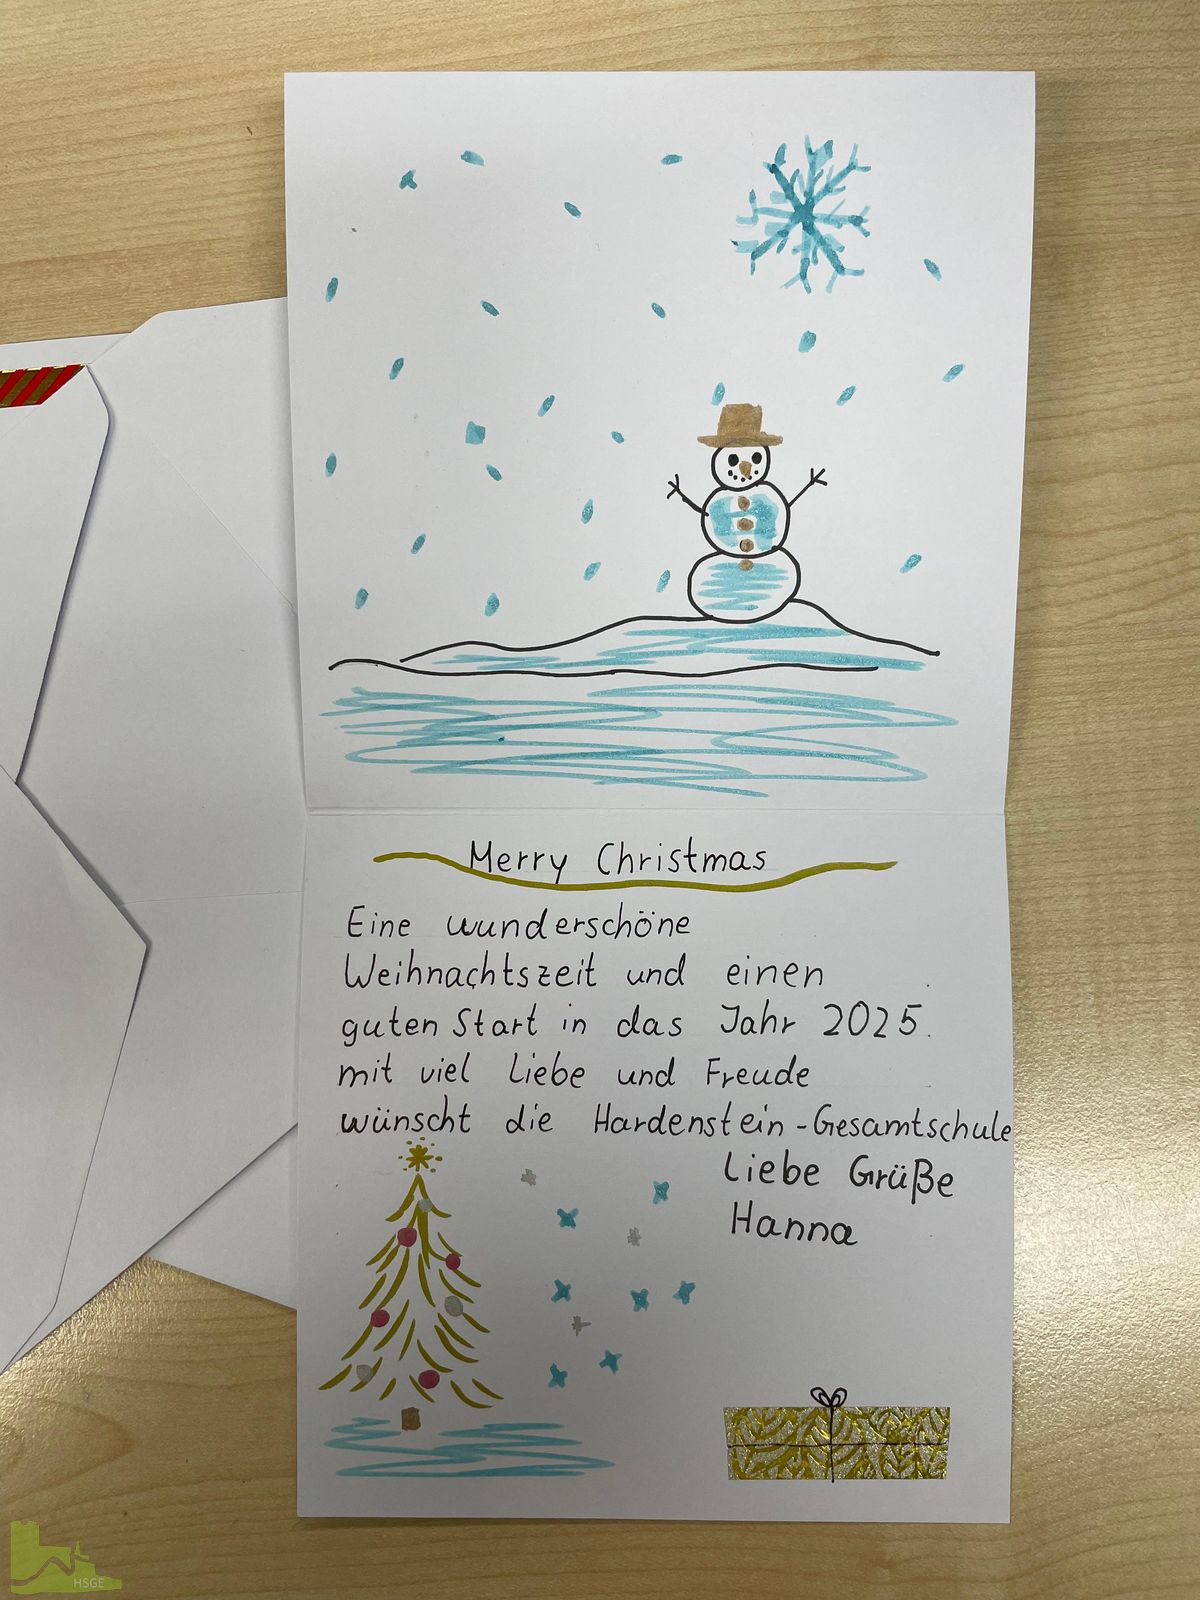 Merry Christmas
Eine wunderschöne
Weihnachtszeit und einen
guten Start in das Jahr 2025.
mit viel Liebe und Freude
wünscht die Hardenstein-Gesamtschule
Liebe Grüße
Hanna
HSGE